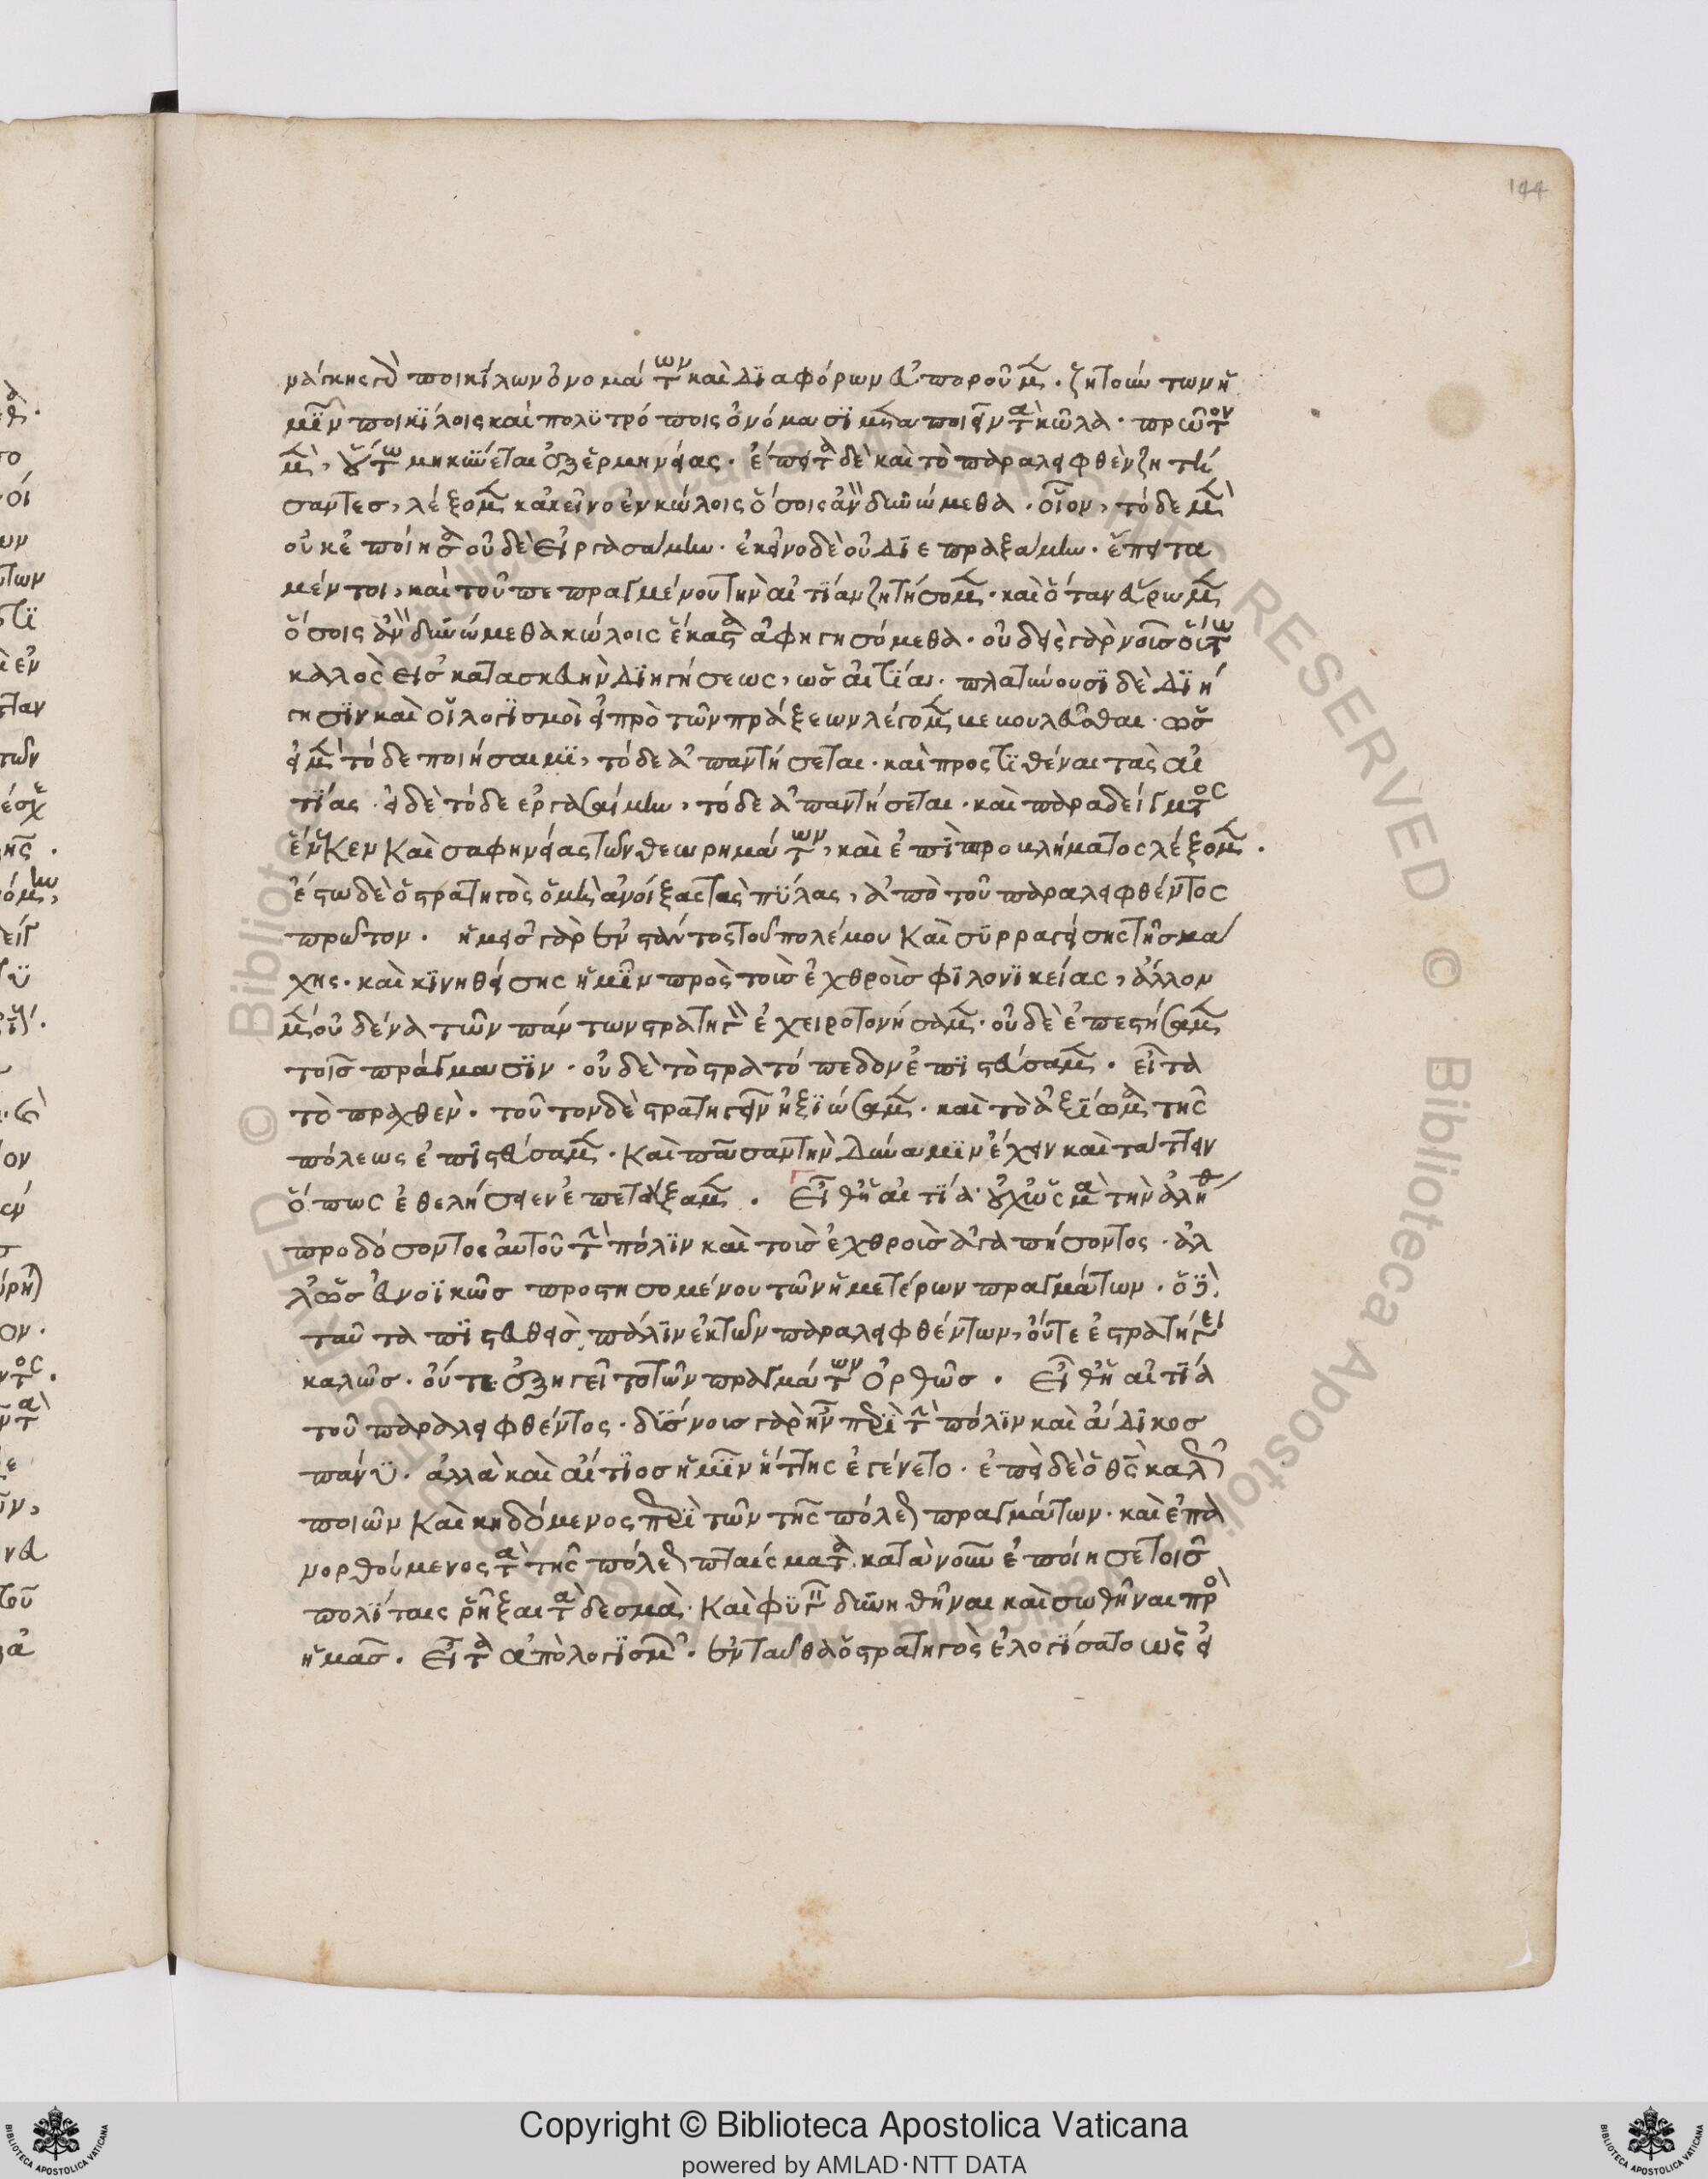 144
νάγκης γὰρ ποικίλων ὀνομάτων καὶ διαφόρων εὐποροῦμεν. ζητοίη τῶν ἡ
μῖν ποικίλοις καὶ πολυτρόποις ὀνόμασι μεταποιεῖν τὰ κῶλα. πρῶτον
μὲν, οὕτω μηκύνεται ἐξ ἑρμηνείας. ἔπειτα δὲ καὶ τὸ παραλειφθὲν ζητή
σαντες, λέξομεν κἀκεῖνο ἐν κώλοις ὅσοις ἂν δυνώμεθα. οἷον, τόδε μὲν
οὐκ ἐποίησα οὐδὲ εἰργασάμην. ἐκεῖνο δὲ οὐ διεπραξάμην. ἔπειτα
μέντοι, καὶ τοῦ πεπραγμένου τὴν αἰτίαν ζητήσομεν. καὶ ὅταν εὕρωμεν
ὅσοις ἂν δυνώμεθα κώλοις ἕκαστα ἀφηγησόμεθα. οὐδεὶς γὰρ νοῦς οὕτω
καλὸς εἰς κατασκευὴν διηγήσεως, ὡς αἰτία. πλατύνουσι δὲ διή
γησιν καὶ οἱ λογισμοὶ εἰ πρὸ τῶν πράξεων λέγομεν κεκουλεῦσθαι. ὡς
εἰ μὲν τόδε ποιήσαιμι, τόδε ἀπαντήσεται. καὶ προστιθέναι τὰς αἰ
τίας. εἰ δὲ τόδε ἐργασαίμην, τόδε ἀπαντήσεται. καὶ παραδείγματος
ἕνεκεν καὶ σαφηνείας τῶν θεωρημάτων, καὶ ἐπὶ προκλήματος λέξομεν.
ἔστω δὲ ὁ στρατηγὸς ὁ μὴ ἀνοίξας τὰς πύλας, ἀπὸ τοῦ παραλειφθέντος
πρῶτον. ἡμεῖς γὰρ ἐνστάντος τοῦ πολέμου καὶ συρραγείσης τῆς μά
χης. καὶ κινηθείσης ἡμῖν πρὸς τοὺς ἐχθροὺς φιλονικείας, ἄλλον
μὲν οὐδένα τῶν πάντων στρατηγὸν ἐχειροτονήσαμεν. οὐδὲ ἐπεστήσαμεν
τοῖς πράγμασιν. οὐδὲ τὸ στρατόπεδον ἐπιστεύσαμεν. εἶτα
τὸ πραχθέν. τοῦτον δὲ στρατηγεῖν ἠξιώσαμεν. καὶ τὸ ἀξίωμα τῆς
πόλεως ἐπιστεύσαμεν. καὶ πᾶσαν τὴν δύναμιν ἔχειν καὶ τάττειν
ὅπως ἐθελήσειεν ἐπετάξαμεν. Εἶθ᾽ ἡ αἰτία οὐχ ὡς μὰ τὴν ἀλήθ
προδόσοντος αὐτοῦ τὴν πόλιν καὶ τοὺς ἐχθροὺς ἀγαπήσοντος. ἀλ
λ᾽ ὡς εὐνοϊκῶς προστησομένου τῶν ἡμετέρων πραγμάτων. ὁ δὲ
ταῦτα πιστευθεὶς πάλιν ἐκ τῶν παραλειφθέντων, οὔτε ἐστρατήγει
καλῶς. οὔτε ἐξηγεῖτο τῶν πραγμάτων ὀρθῶς. Εἶθ᾽ ἡ αἰτία
τοῦ παραλειφθέντος. δύσνους γὰρ ἦν περὶ τὴν πόλιν καὶ ἄδικος
πάνυ. ἀλλὰ καὶ αἴτιος ἡμῖν ἥττης ἐγένετο. ἐπεὶ δὲ ὁ θεὸς καλῶς
ποιῶν καὶ κηδόμενος περὶ τῶν τῆς πόλεως πραγμάτων. καὶ ἐπα
νορθούμενος τὰ τῆς πόλεως πταίσματα. κατὰ νοῦν ἐποίησε τοῖς
πολίταις ῥῆξαι τὰ δεσμά. καὶ φυγῇ διωχθῆναι καὶ σωθῆναι πρὸς
ἡμᾶς. Εἶτα ἀπὸ λογισμοῦ. ἐνταῦθα ὁ στρατηγὸς ἐλογίσατο ὡς εἰ
Copyright © Biblioteca Apostolica Vaticana
powered by AMLAD·NTT DATA